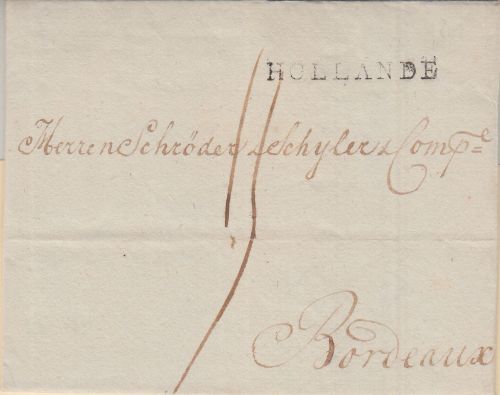 HOLLANDE
Herren Schröder & Schyler & Comp.e
Bordeaux